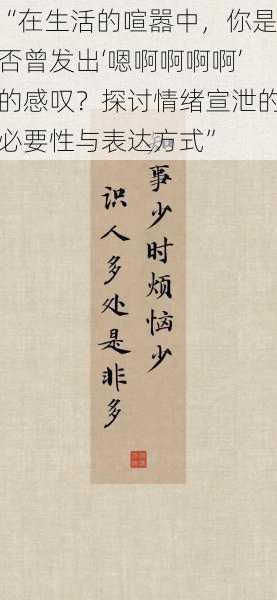 “在生活的喧嚣中，你是
否曾发出‘嗯啊啊啊啊’
的感叹？探讨情绪宣泄的
必要性与表达方式”
事少时烦恼少
识人多处是非多